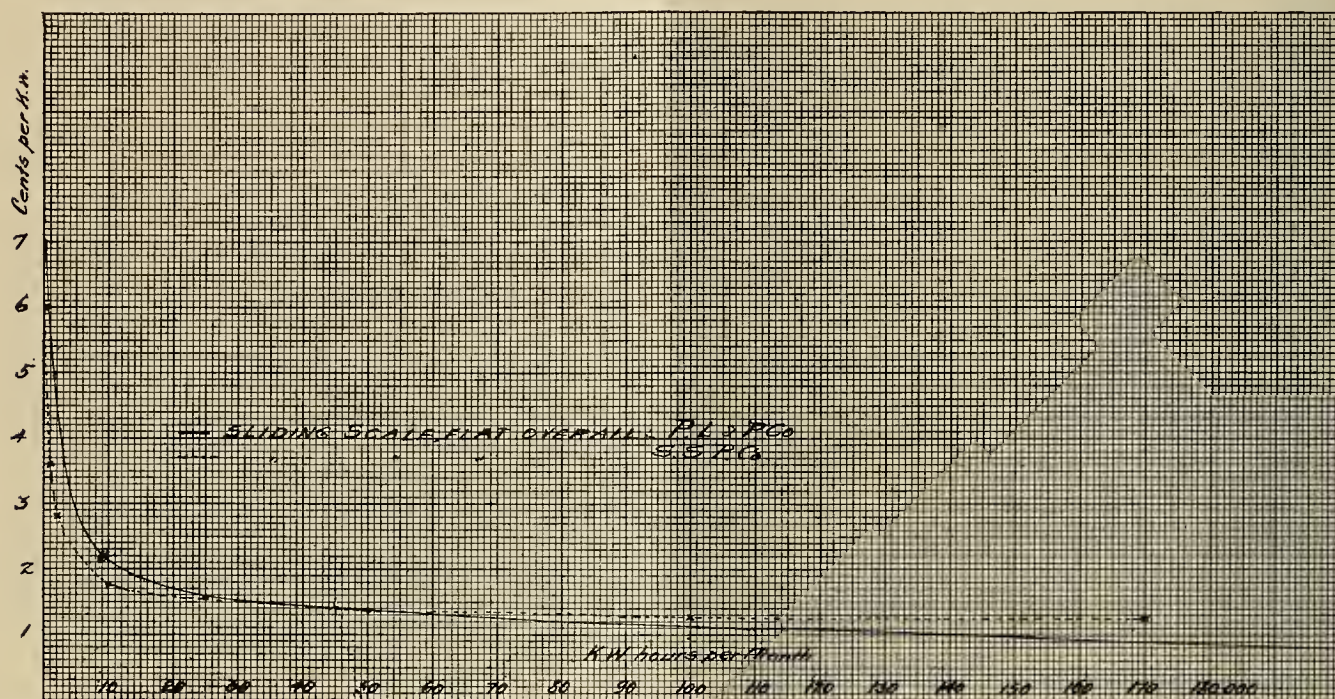 Cents per K.W.
7
6
5
4
3
2
1
SLIDING SCALE, FLAT OVERALL - P.L & P.Co
" " " " S.S.P.Co
K.W. hours per Month
10 20 30 40 50 60 70 80 90 100 110 120 130 140 150 160 170 180.000